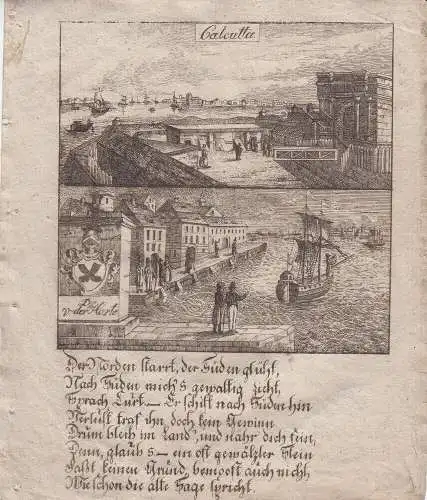 Calcutta
v. der Horle
Der Norden starrt, der Süden glüht,
Nach Süden mich's gewaltig zieht,
Sprach Curt. — Er schift nach Süden hin
Verlust traf ihn doch kein Gewinn
Drum bleib im Land, und nähr dich fein,
Denn, glaub's — ein oft gewälzter Stein
Faßt keinen Grund, bemoost auch nicht,
Wie schon die alte Sage spricht.